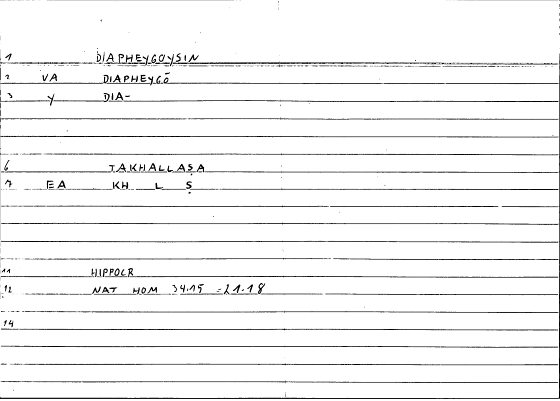 1 DIAPHEYGOYSIN
2 VA DIAPHEYGŌ
3 Y DIA-
6 TAKHALLAṢA
7 EA KH L Ṣ
11 HIPPOCR
12 NAT HOM 34.15 = 21.18
14